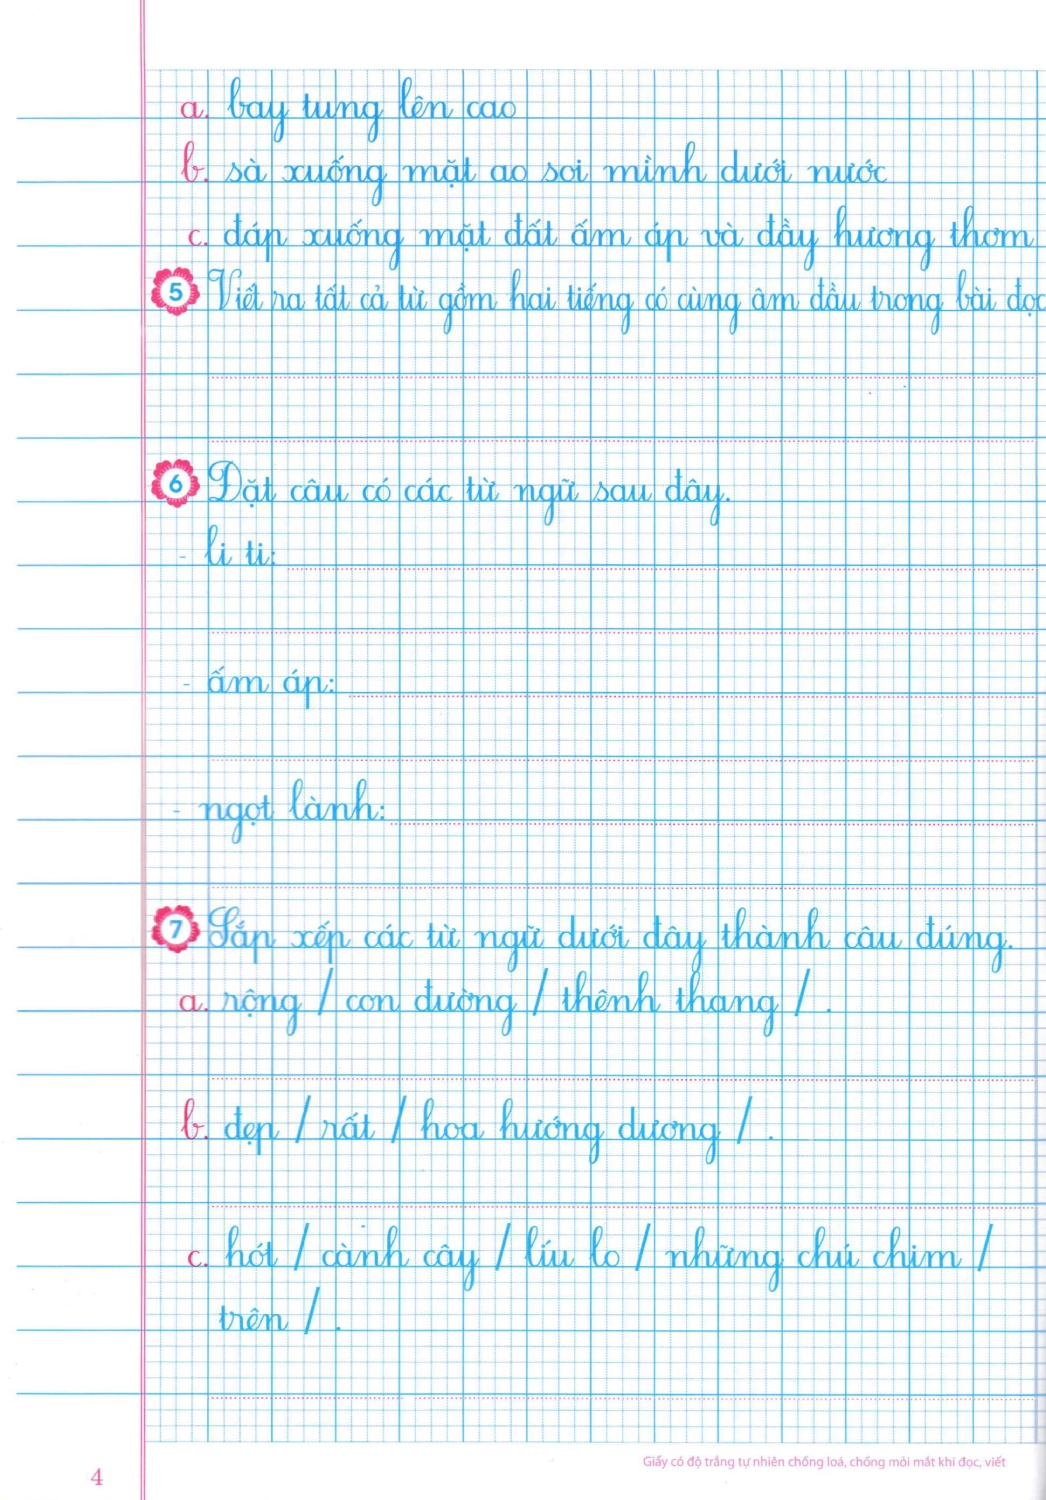 a. bay tung lên cao
b. sà xuống mặt ao soi mình dưới nước
c. đáp xuống mặt đất ấm áp và đầy hương thơm
5 Viết ra tất cả từ gồm hai tiếng có cùng âm đầu trong bài đọc
6 Đặt câu có các từ ngữ sau đây.
- li ti:
- ấm áp:
- ngọt lành:
7 Sắp xếp các từ ngữ dưới đây thành câu đúng.
a. rộng / con đường / thênh thang / .
b. đẹp / rất / hoa hướng dương / .
c. hót / cành cây / líu lo / những chú chim /
trên / .
4
Giấy có độ trắng tự nhiên chống loá, chống mỏi mắt khi đọc, viết